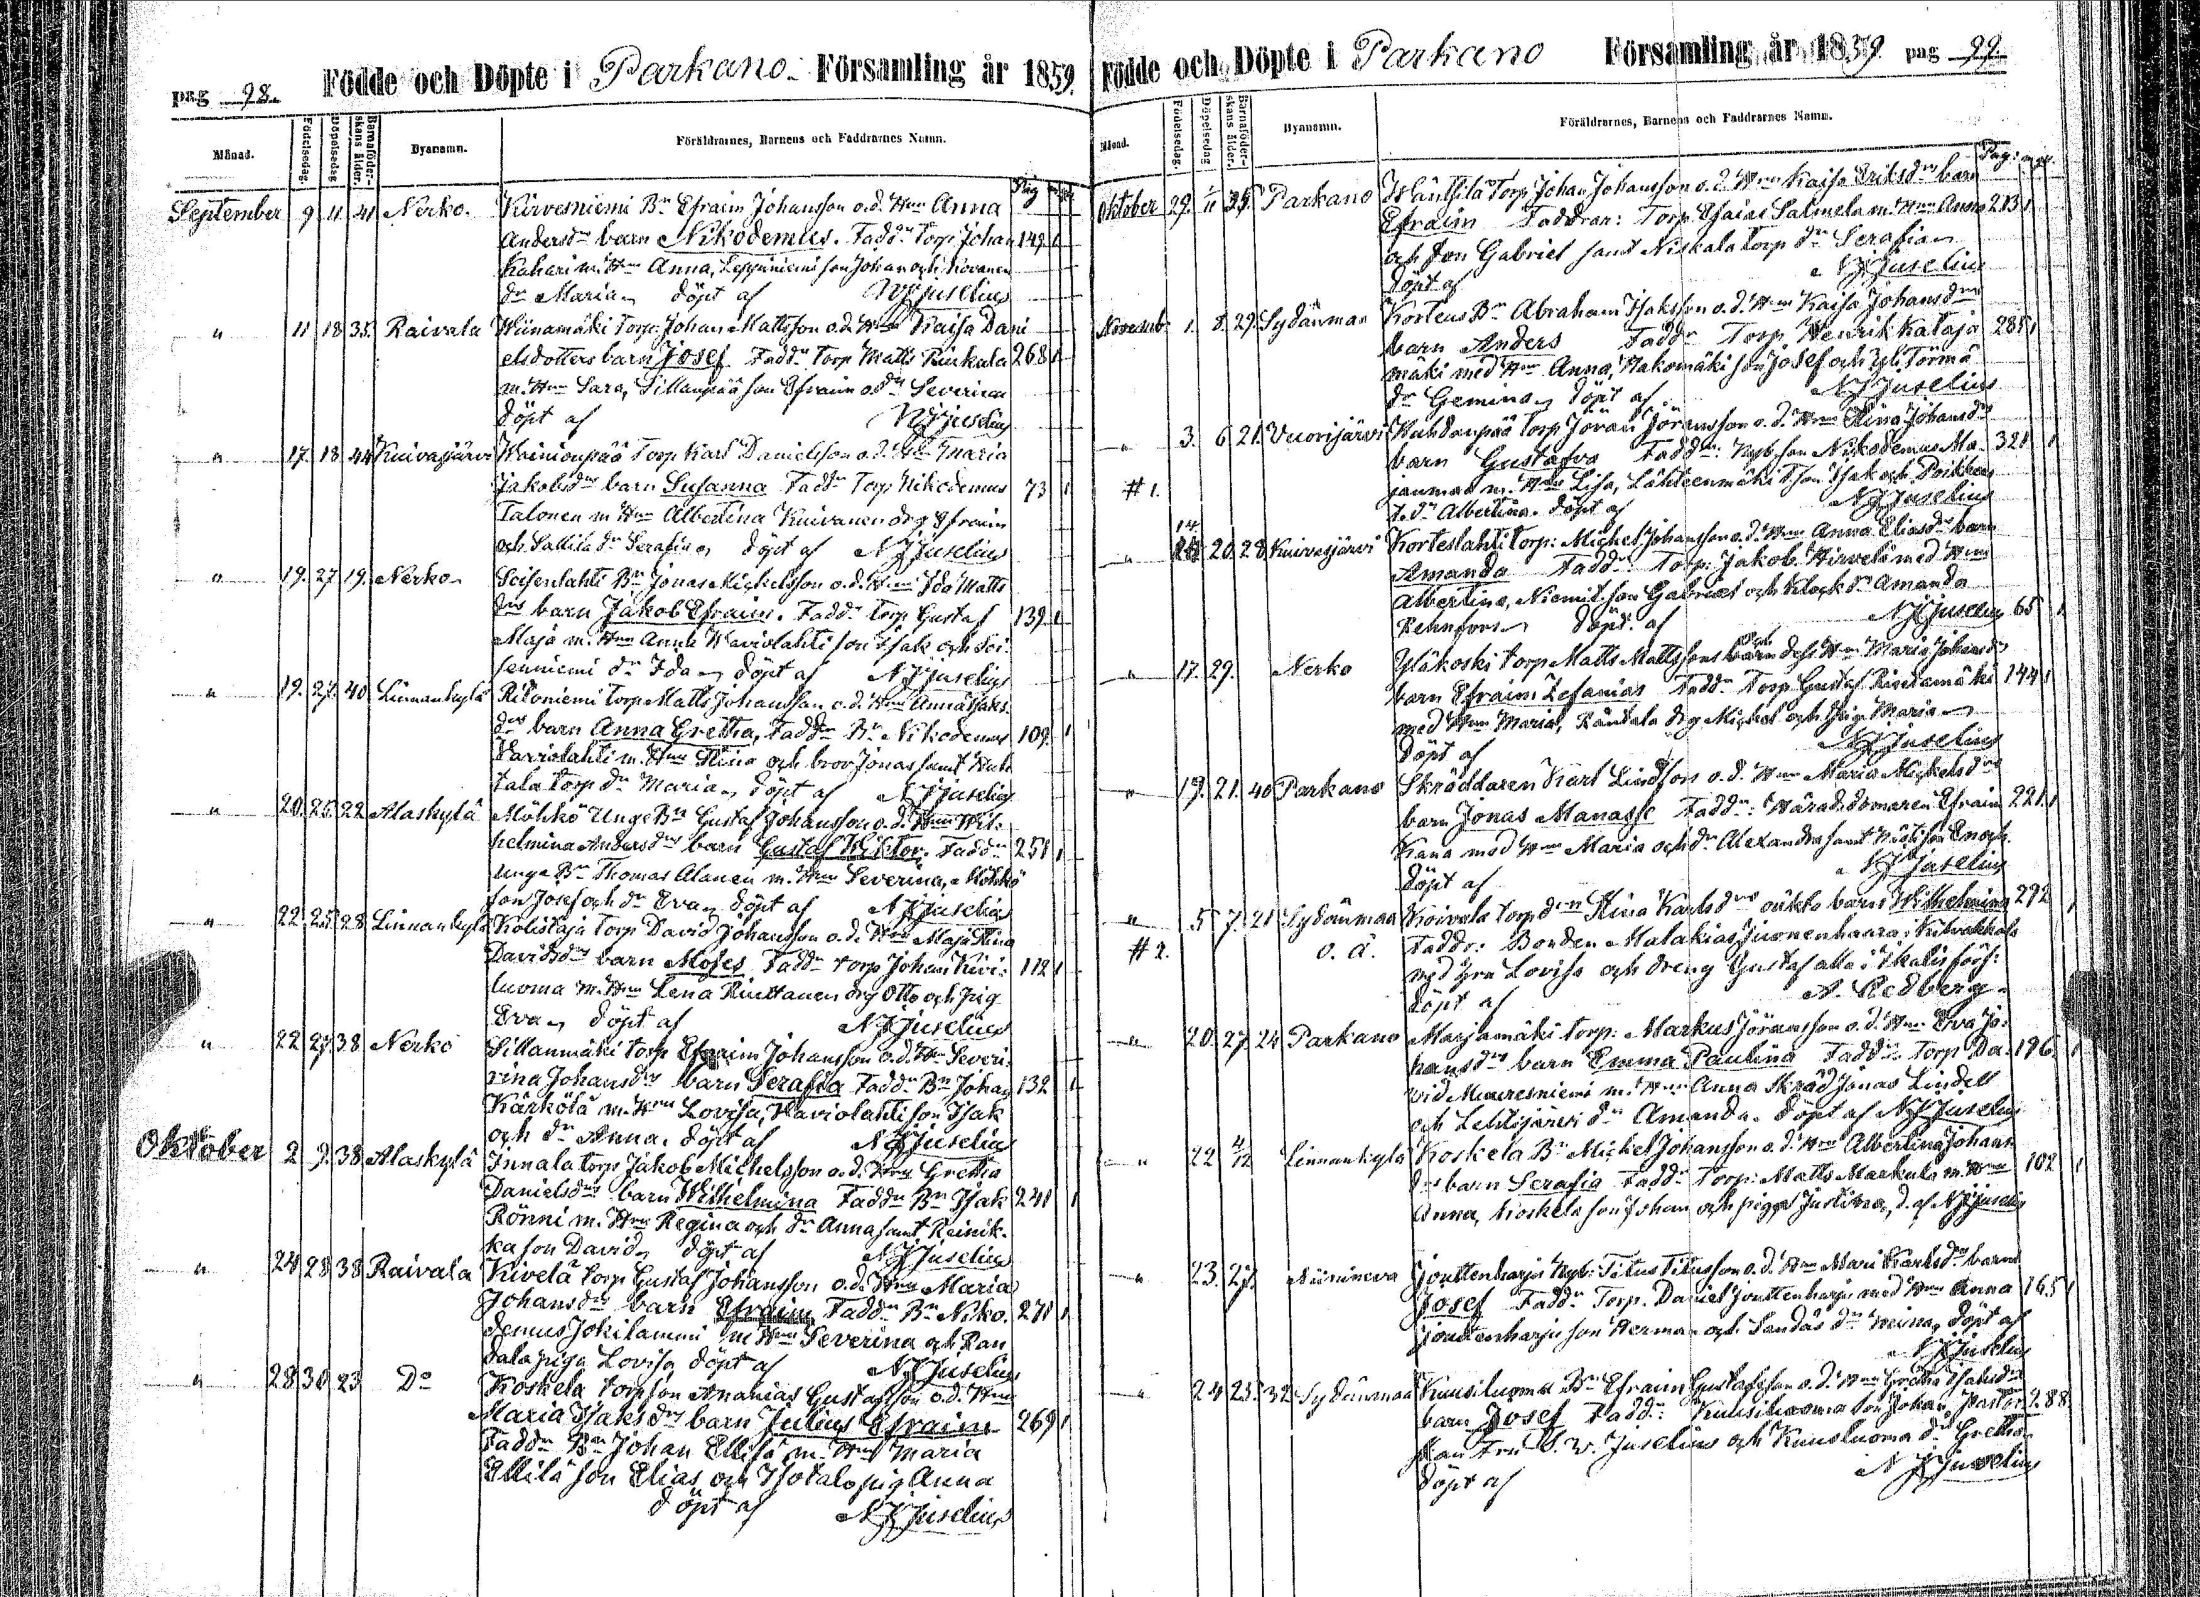 pag 98. Födde och Döpte i Parkano. Församling år 1859.
Månad. Födelsedag. Döpelsedag Barnaföderskans ålder. Byanamn. Föräldrarnes, Barnens och Faddrarnes Namn. Pag
September 9 11 41 Nerko. Kirvesniemi Bn Efraim Johansson o.d. Hru Anna
Andersdrs barn Nikodemus. Faddr Torp Johan 149 1
Kahari m. Hru Anna, Leppiniemi son Johan och Kovanen
dr Maria döpt af NJJuselius
" 11 18 35 Raivala Wiinamäki Torp: Johan Mattsson o.d. Hru Kaisa Dani
elsdotters barn Josef Faddr Torp Matts Rinkala 268 1
m. Hru Sara, Sillanpää son Efraim o dr Severina
döpt af NJJuselius
" 17 18 44 Kuivasjärvi Wainionpää Torp Karl Danielsson o.d. Hru Maria
Jakobsdrs barn Susanna Faddr Torp Nikodemus 73 1
Talonen m Hru Albertina Kuivanen drg Efraim
och Sallila dr Serafina döpt af NJJuselius
" 19. 27 19. Nerko Soisenlahti Bn Jonas Michelsson o.d. Hru Ida Matts
drs barn Jakob Efraim. Faddr Torp Gustaf 139 1
Maja m. Hru Anna Waviolahti son Isak och Soi-
senniemi dr Ida döpt af NJJuselius
" 19. 27. 40 Linnankylä Ritoniemi Torp Matts Johansson o.d. Hru Anna Isaks
drs barn Anna Gretha, Faddr Bn Nikodemus 109. 1
m. Hru Stina och bror Jonas samt
tala torp dr Maria döpt af NJJuselius
" 20. 25. 22 Alaskylä Möhkö Unge Bn Gustaf Johansson o.d. Hru Wil-
helmina Andersdrs barn Gustaf Wiktor. Faddr 251 1
Unge Bn Thomas Alanen m. Hru Severina, Möhkö
son Josef och dr Eva döpt af NJJuselius
" 22. 25 28 Linnankylä Kolistaja Torp David Johansson o.d. Hru Maja Stina
Davidsdrs barn Moses Faddr Torp Johan Kivi- 112 1
luoma m. Hru Lena Rinttanen drg Otto och pig
Eva döpt af NJJuselius
" 22 27 38 Nerko Sillanmäki torp Efraim Johansson o.d. Hru Severi-
rina Johansdrs barn Serafia Faddr Bn Johan 132 1
Kärkölä m. Hru Lovisa, Waviolahti son Isak
och dr Anna. döpt af NJJuselius
Oktober 2 9. 38 Alaskylä Innala torp Jakob Michelsson o.d. Hru Gretha
Danielsdrs barn Wilhelmina Faddr Bn Isak 241 1
Rönni m. Hru Regina och dr Anna samt Reinik-
ka son David döpt af NJJuselius
" 24 28 38 Raivala Kivelä torp Gustaf Johansson o.d. Hru Maria
Johansdrs barn Efraim Faddr Bn Niko- 271 1
demus Jokilammi m Hru Severina och Ran
dala piga Lovisa döpt af NJJuselius
" 28 30 23 Do Koskela torp son Ananias Gustafsson o.d. Hru
Maria Isaksdrs barn Julius Efraim 269 1
Faddr Bn Johan Ellilä m. Hru Maria
Ellilä son Elias och Isotalo pig Anna
döpt af NJJuselius
Födde och Döpte i Parkano Församling år 1859. pag 99.
Månad. Födelsedag. Döpelsedag Barnaföderskans ålder. Byanamn. Föräldrarnes, Barnens och Faddrarnes Namn. Pag:
Oktober 29. 1/11 35. Parkano Torp: Johan Johansson o.d. Hru Kaisa Eriksdrs barn
Efraim Faddrar: Torp Esaias Salmela m. Hru Anna 213 1
och son Gabriel samt Niskala torp dr Serafia
döpt af NJJuselius
Novemb. 1. 8. 29. Sydänmaa Korteus Bn Abraham Isaksson o.d. Hru Kaisa Johansdrs
barn Anders Faddr Torp Henrik Kataja 285 1
mäki med Hru Anna, Hakomäki son Josef och Törmä
dr Gemina döpt af NJJuselius
" 3. 6 21. Vuorijärvi Torp Jöran Jöransson o.d. Hru Stina Johansdrs
barn Gustafva Faddr: Nyb. son Nikodemus Ma- 321 1
# 1. janmaa m. Hru Lisa, Lähteenmäki Tson Isak och
t. dr Albertina. döpt af NJJuselius
" 14 20. 28 Kuivasjärvi Korteslahti Torp: Michel Johansson o.d. Hru Anna Eliasdrs barn
Amanda Faddr Torp: Jakob Hirvelä med Hru
Albertina, Niemi t. son Gabriel och Klock dr Amanda
Rehnfors döpt. af NJJuselius 65 1
" 17. 29. Nerko Yläkoski torp Matts Mattssons och dess Hru Maria Johansdrs
barn Efraim Zefanias Faddr Torp Gustaf 144 1
med Hru Maria, Rändala drg Michel och pig Maria
döpt af NJJuselius
" 19. 21. 40 Parkano Skräddaren Karl Lindfors o.d. Hru Maria Michelsdrs
barn Jonas Manasse Faddr: Häradsdomaren Efraim 221. 1
Kana med Hru Maria och dr Alexandra samt son Enoch.
döpt af NJJuselius
" 5 7. 21 Sydänmaa Koivula torp drn Stina Karlsdrs oäkta barn Wilhelmina 292 1
# 2. o. ä. Faddr: Bonden Malakias Juonenhaara
med Hru Lovisa och dreng Gustaf alla i Ikalis förs:
döpt af A. Redberg
" 20. 27. 24 Parkano Marjamäki torp: Markus Jöransson o.d. Hru Eva Jo-
hansdrs barn Emma Paulina Faddr. Torp Da- 196 1
vid m. Hru Anna Skräd Jonas Lindell
och Lehtisjärvi dr Amanda. döpt af NJJuselius
" 22 4/12 Linnankylä Koskela Bn Michel Johansson o.d. Hru Albertina Johans
drs barn Serafia Faddr Torp: Matts Markula m. Hru 102 1
Anna, Koskela son Johan och piga Justina, d. af NJJuselius
" 23. 27. Niiniineva Jouttenharju Nyb: Titus Titusson o.d. Hru Mari Karlsdrs barn
Josef Faddr Torp. Daniel Jouttenharju med Hru Anna 165 1
Jouttenharju son Herman och Sandås dr döpt af
NJJuselius
" 24 25. 32 Sydänmaa Kuusiluoma Bn Efraim Gustafsson o.d. Hru Gretha Isaksdrs
barn Josef Faddr: Kuusiluoma son Johan, Pastor 288
skan Fru S. W. Juselius och Kuusluoma dr Gretha
döpt af NJJuselius